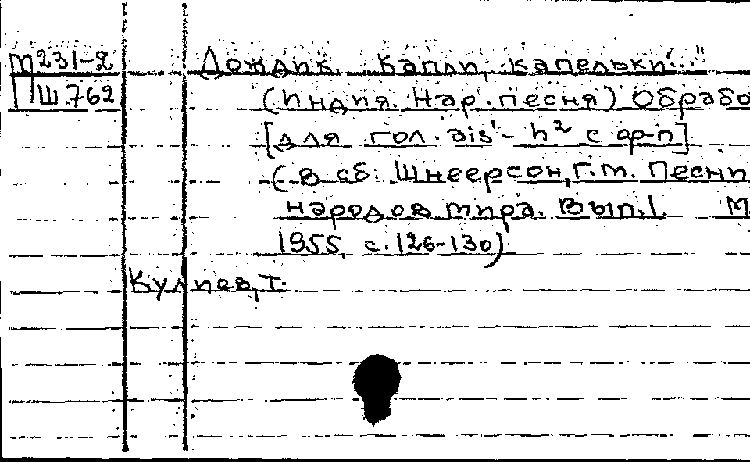 М231-2
Ш762
Дождик. "Капли, капельки..."
(Индия. Нар. песня) Обрабо
[для гол. ais' - h² с ф-п]
(в сб: Шнеерсон, Г.М. Песни
народов мира. Вып. I. М
1955, с. 126-130)
Кулиев, Т.